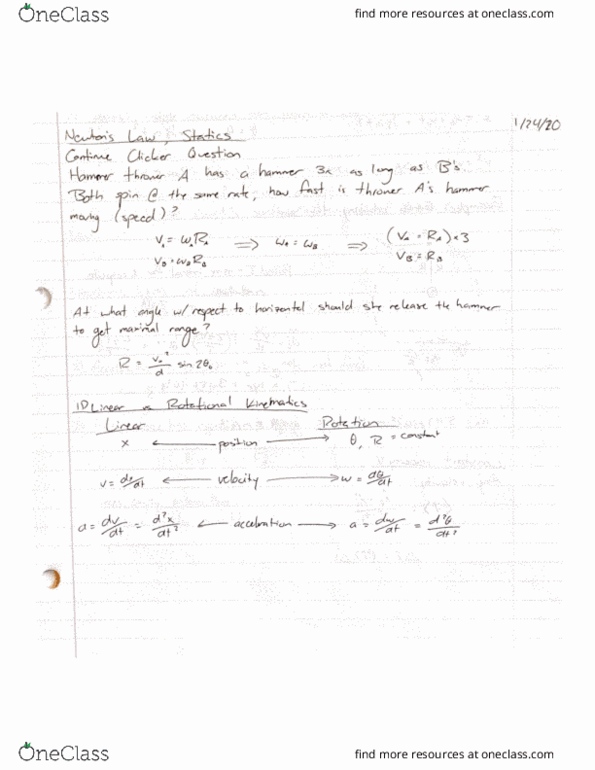 OneClass
find more resources at oneclass.com
1/24/20
Newton's Law, Statics
Continue Clicker Question
Hammer thrower A has a hammer 3x as long as B's.
Both spin @ the same rate, how fast is thrower A's hammer
moving (speed)?
Vₐ = ωₐRₐ ⟹ ωₐ = ω_B ⟹ (Vₐ = Rₐ)×3
V_B = ω_B R_B V_B = R_B
At what angle w/ respect to horizontal should she release the hammer
to get maximal range?
R = v₀²/d sin 2θ₀
1D Linear vs Rotational Kinematics
Linear Rotation
x ⟵ position ⟶ θ, R = constant
v = dx/dt ⟵ velocity ⟶ w = dθ/dt
a = dv/dt = d²x/dt² ⟵ acceleration ⟶ a = dw/dt = d²θ/dt²
OneClass
find more resources at oneclass.com